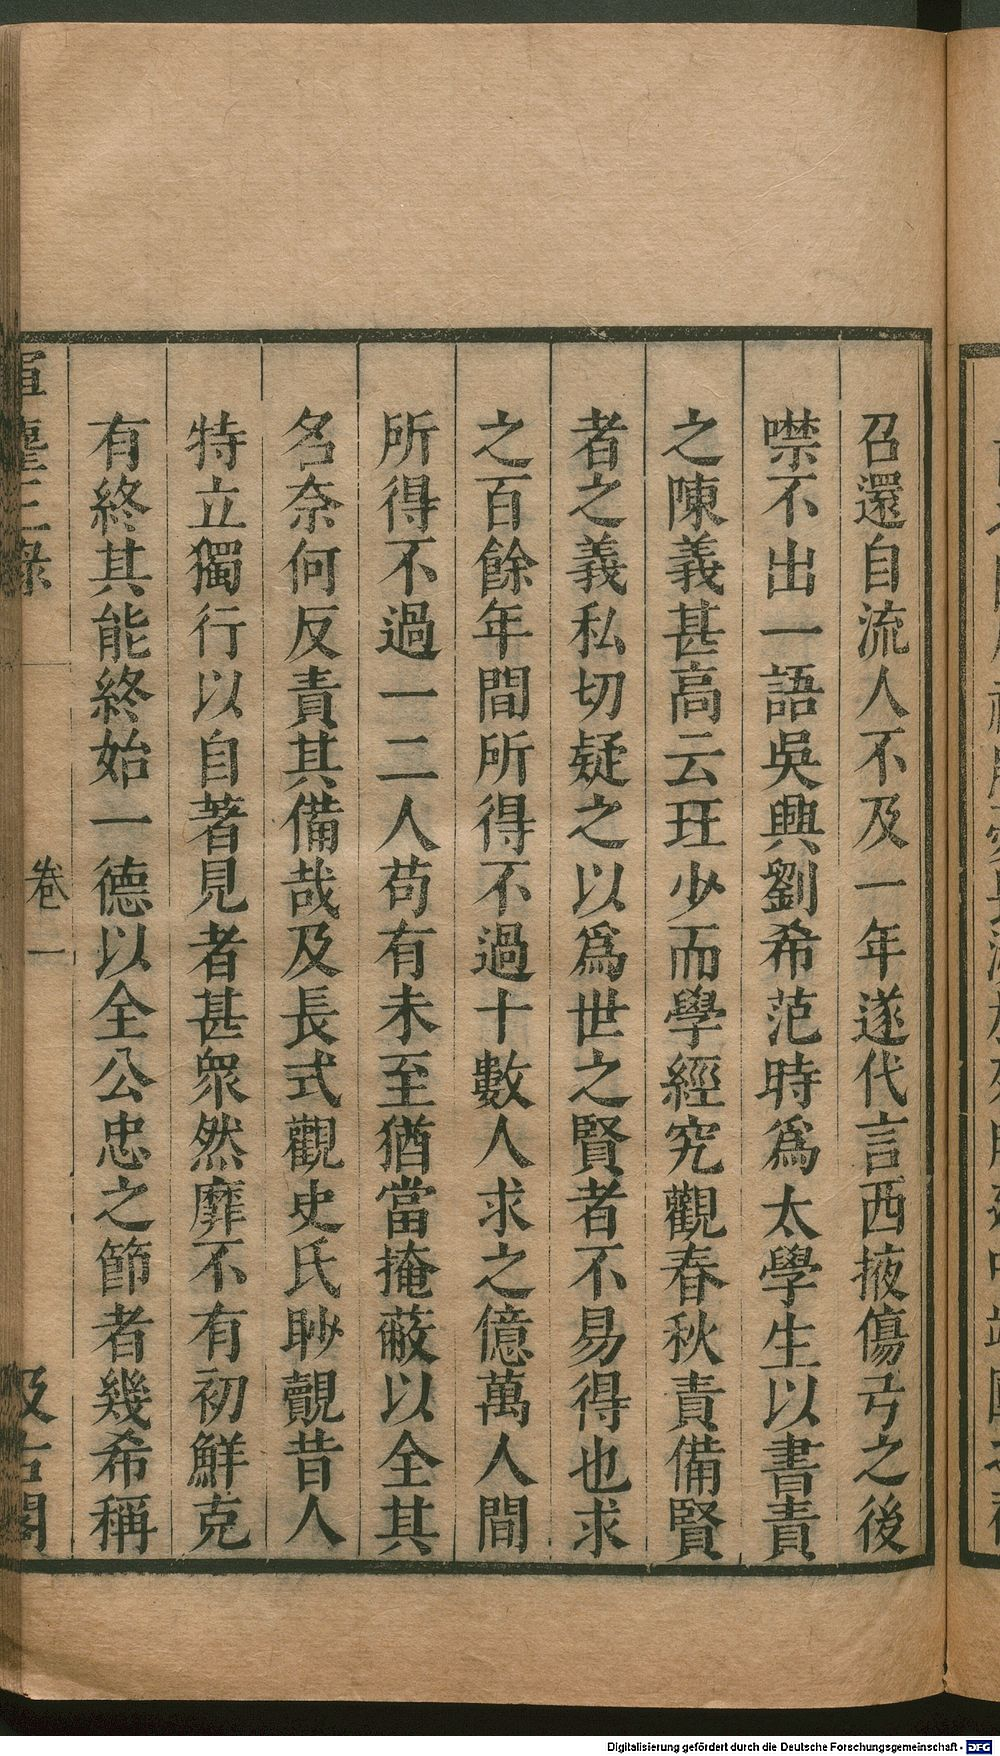 召還自流人不及一年遂代言西掖傷弓之後
噤不出一語吳興劉希范時爲太學生以書責
之陳義甚高云玨少而學經究觀春秋責備賢
者之義私切疑之以爲世之賢者不易得也求
之百餘年間所得不過十數人求之億萬人間
所得不過一二人苟有未至猶當掩蔽以全其
名奈何反責其備哉及長式觀史氏眇覿昔人
特立獨行以自著見者甚衆然靡不有初鮮克
有終其能終始一德以全公忠之節者幾希稱
卷一
汲古閣
Digitalisierung gefördert durch die Deutsche Forschungsgemeinschaft - DFG